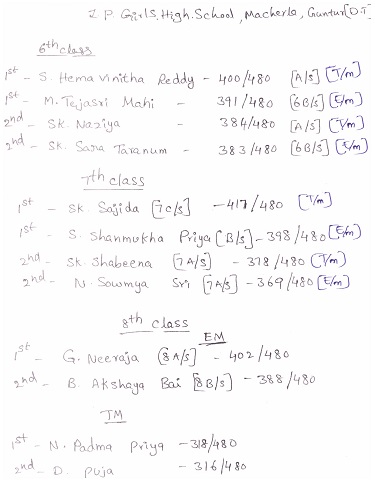 Z.P. Girls. High. School, Macherla, Guntur[D.T]
6th class
1st - S. Hema Vinitha Reddy - 400/480 [A/s] [T/m]
1st - M. Tejasri Mahi - 391/480 [6B/s] [E/m]
2nd - Sk. Naziya - 384/480 [A/s] [T/m]
2nd - Sk. Sara Taranum - 383/480 [6B/s] [E/m]
7th class
1st - Sk. Sajida [7C/s] - 417/480 [T/m]
1st - S. Shanmukha Priya [B/s] - 398/480 [E/m]
2nd - Sk. Shabeena [7A/s] - 378/480 [T/m]
2nd - N. Sowmya Sri [7A/s] - 369/480 [E/m]
8th class
EM
1st - G. Neeraja [8A/s] - 402/480
2nd - B. Akshaya Bai [8B/s] - 388/480
TM
1st - N. Padma Priya - 318/480
2nd - D. Puja - 316/480